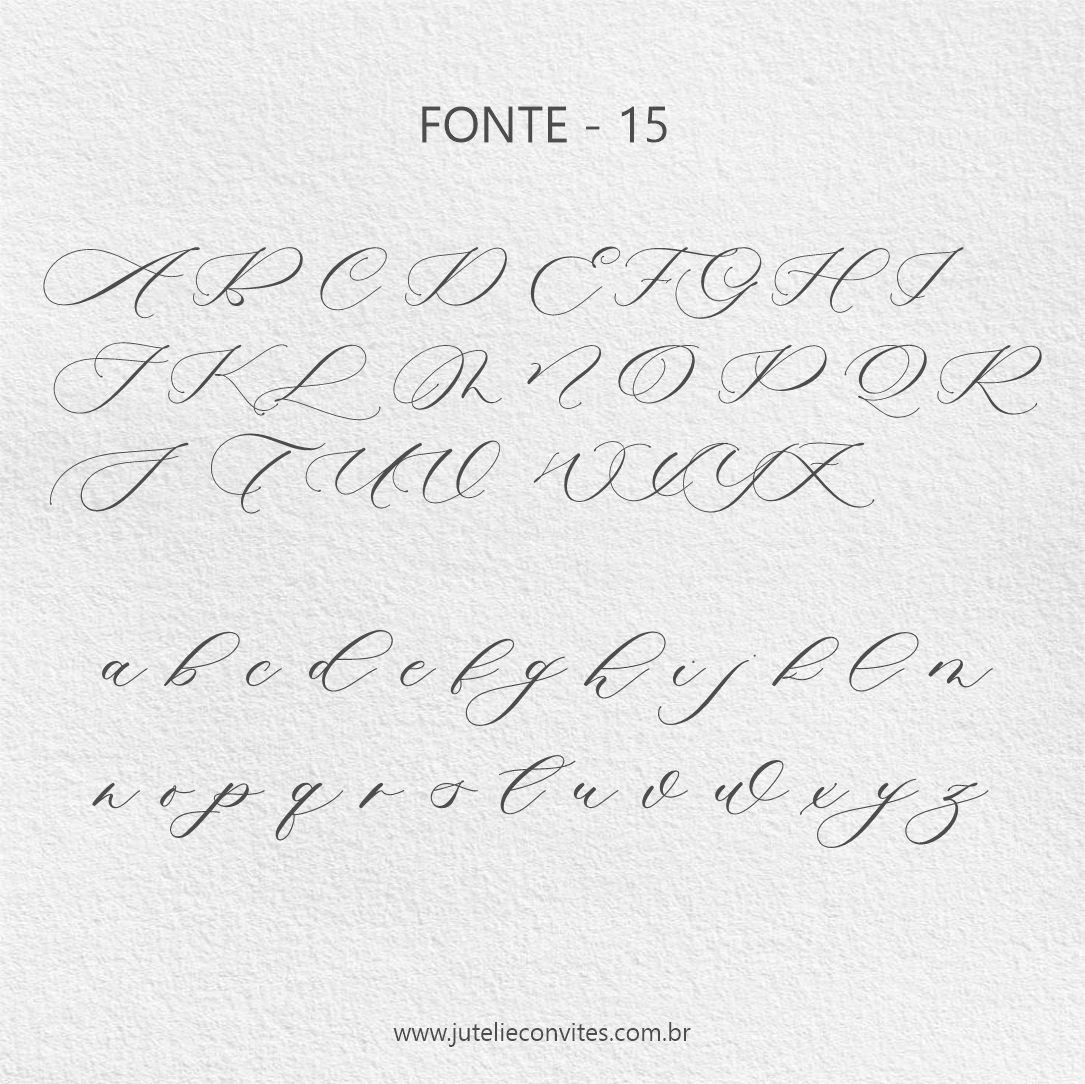 FONTE - 15
A B C D E F G H I
J K L M N O P Q R
S T U V W X Y Z
a b c d e f g h i j k l m
n o p q r s t u v w x y z
www.jutelieconvites.com.br